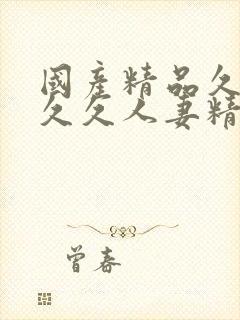 國産精品久
久久人妻精
曾春